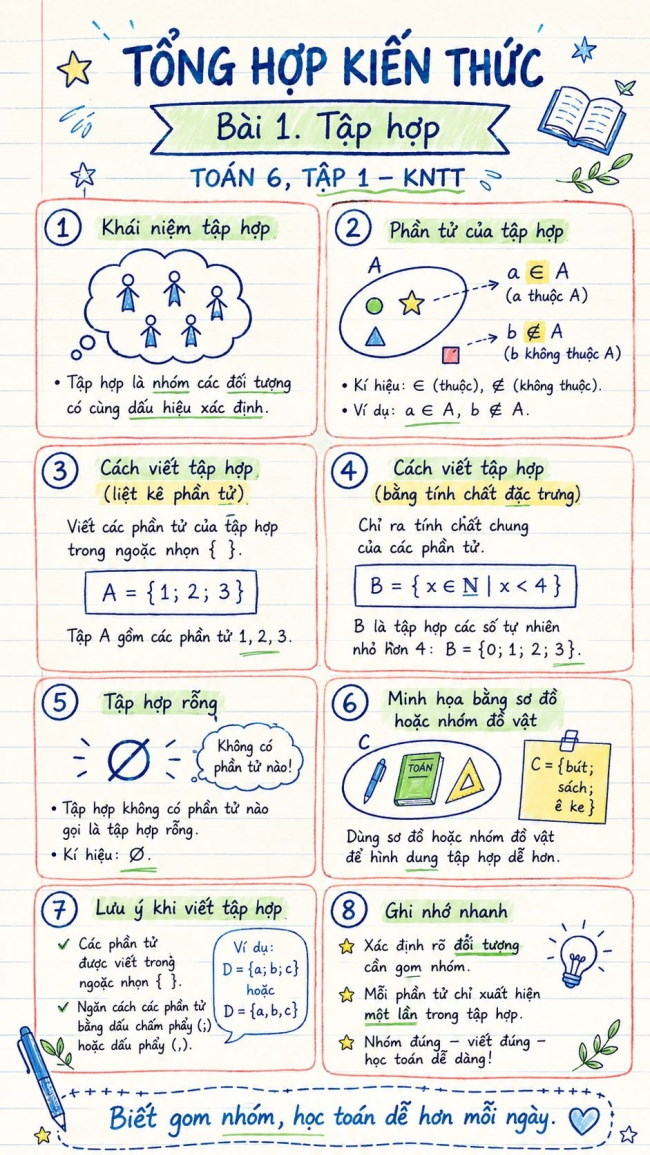 TỔNG HỢP KIẾN THỨC
Bài 1. Tập hợp
TOÁN 6, TẬP 1 – KNTT
1 Khái niệm tập hợp
• Tập hợp là nhóm các đối tượng
có cùng dấu hiệu xác định.
2 Phần tử của tập hợp
A
a ∈ A
(a thuộc A)
b ∉ A
(b không thuộc A)
• Kí hiệu: ∈ (thuộc), ∉ (không thuộc).
• Ví dụ: a ∈ A, b ∉ A.
3 Cách viết tập hợp
(liệt kê phần tử)
Viết các phần tử của tập hợp
trong ngoặc nhọn { }.
A = {1; 2; 3}
Tập A gồm các phần tử 1, 2, 3.
4 Cách viết tập hợp
(bằng tính chất đặc trưng)
Chỉ ra tính chất chung
của các phần tử.
B = { x ∈ N | x < 4 }
B là tập hợp các số tự nhiên
nhỏ hơn 4: B = {0; 1; 2; 3}.
5 Tập hợp rỗng
∅
Không có
phần tử nào!
• Tập hợp không có phần tử nào
gọi là tập hợp rỗng.
• Kí hiệu: ∅.
6 Minh họa bằng sơ đồ
hoặc nhóm đồ vật
C
TOÁN
C = {bút;
sách;
ê ke}
Dùng sơ đồ hoặc nhóm đồ vật
để hình dung tập hợp dễ hơn.
7 Lưu ý khi viết tập hợp
✓ Các phần tử
được viết trong
ngoặc nhọn { }.
✓ Ngăn cách các phần tử
bằng dấu chấm phẩy (;)
hoặc dấu phẩy (,).
Ví dụ:
D = {a; b; c}
hoặc
D = {a, b, c}
8 Ghi nhớ nhanh
Xác định rõ đối tượng
cần gom nhóm.
Mỗi phần tử chỉ xuất hiện
một lần trong tập hợp.
Nhóm đúng – viết đúng –
học toán dễ dàng!
Biết gom nhóm, học toán dễ hơn mỗi ngày.